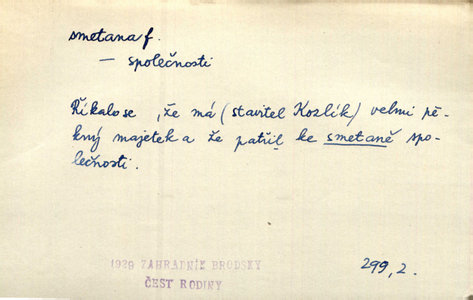 smetana f.
— společnosti
Říkalo se, že má (stavitel Kozlík) velmi pě-
kný majetek a že patřil ke smetaně spo-
lečnosti.
1929 ZAHRADNÍK BRODSKÝ
ČEST RODINY
299, 2.